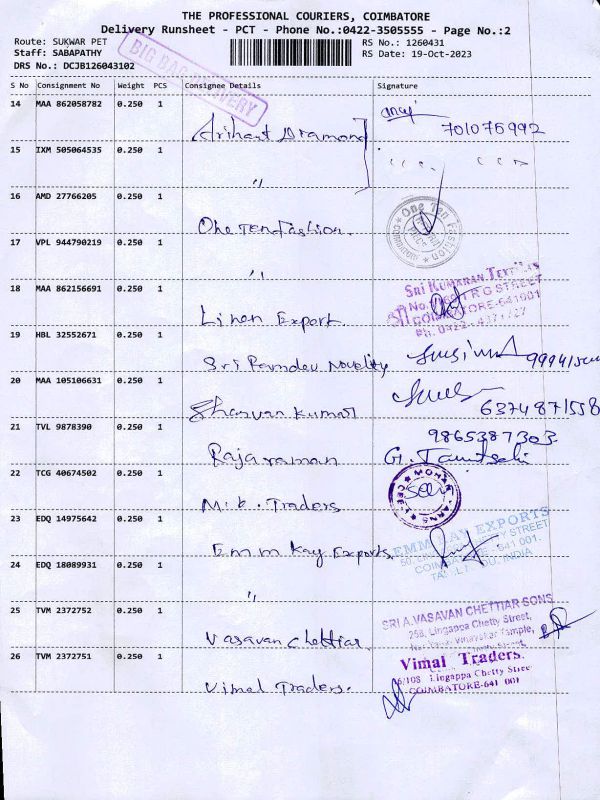 THE PROFESSIONAL COURIERS, COIMBATORE
Delivery Runsheet - PCT - Phone No.:0422-3505555 - Page No.:2
Route: SUKWAR PET
RS No.: 1260431
Staff: SABAPATHY
RS Date: 19-Oct-2023
DRS No.: DCJB126043102
BIG BAG DELIVERY
S No Consignment No Weight PCS Consignee Details Signature
14 MAA 862058782 0.250 1 Arihant Diamond
701075992
15 IXM 505064535 0.250 1 "
16 AMD 27766205 0.250 1 One Ten Fashion.
One Ten Fashion
COIMBATORE
17 VPL 944790219 0.250 1 "
18 MAA 862156691 0.250 1 Linen Export.
SRI KUMARAN TEXTILES
STREET
COIMBATORE-641001
19 HBL 32552671 0.250 1 Sri Ramdev Novelity
20 MAA 105106631 0.250 1 Sharvan Kumar
6374871558
21 TVL 9878390 0.250 1 Rajaraman
9865387303
22 TCG 40674502 0.250 1 M.k. Traders
23 EDQ 14975642 0.250 1 Emm Kay Exports,
EMM KAY EXPORTS
STREET
COIMBATORE - 641 001.
INDIA
24 EDQ 18089931 0.250 1 "
25 TVM 2372752 0.250 1 Vasavan Chettiar.
SRI A.VASAVAN CHETTIAR SONS
258, Lingappa Chetty Street,
Near Vinayakar Temple,
26 TVM 2372751 0.250 1 Vimal Traders.
Vimal Traders.
6/108 Lingappa Chetty Street
COIMBATORE-641 001